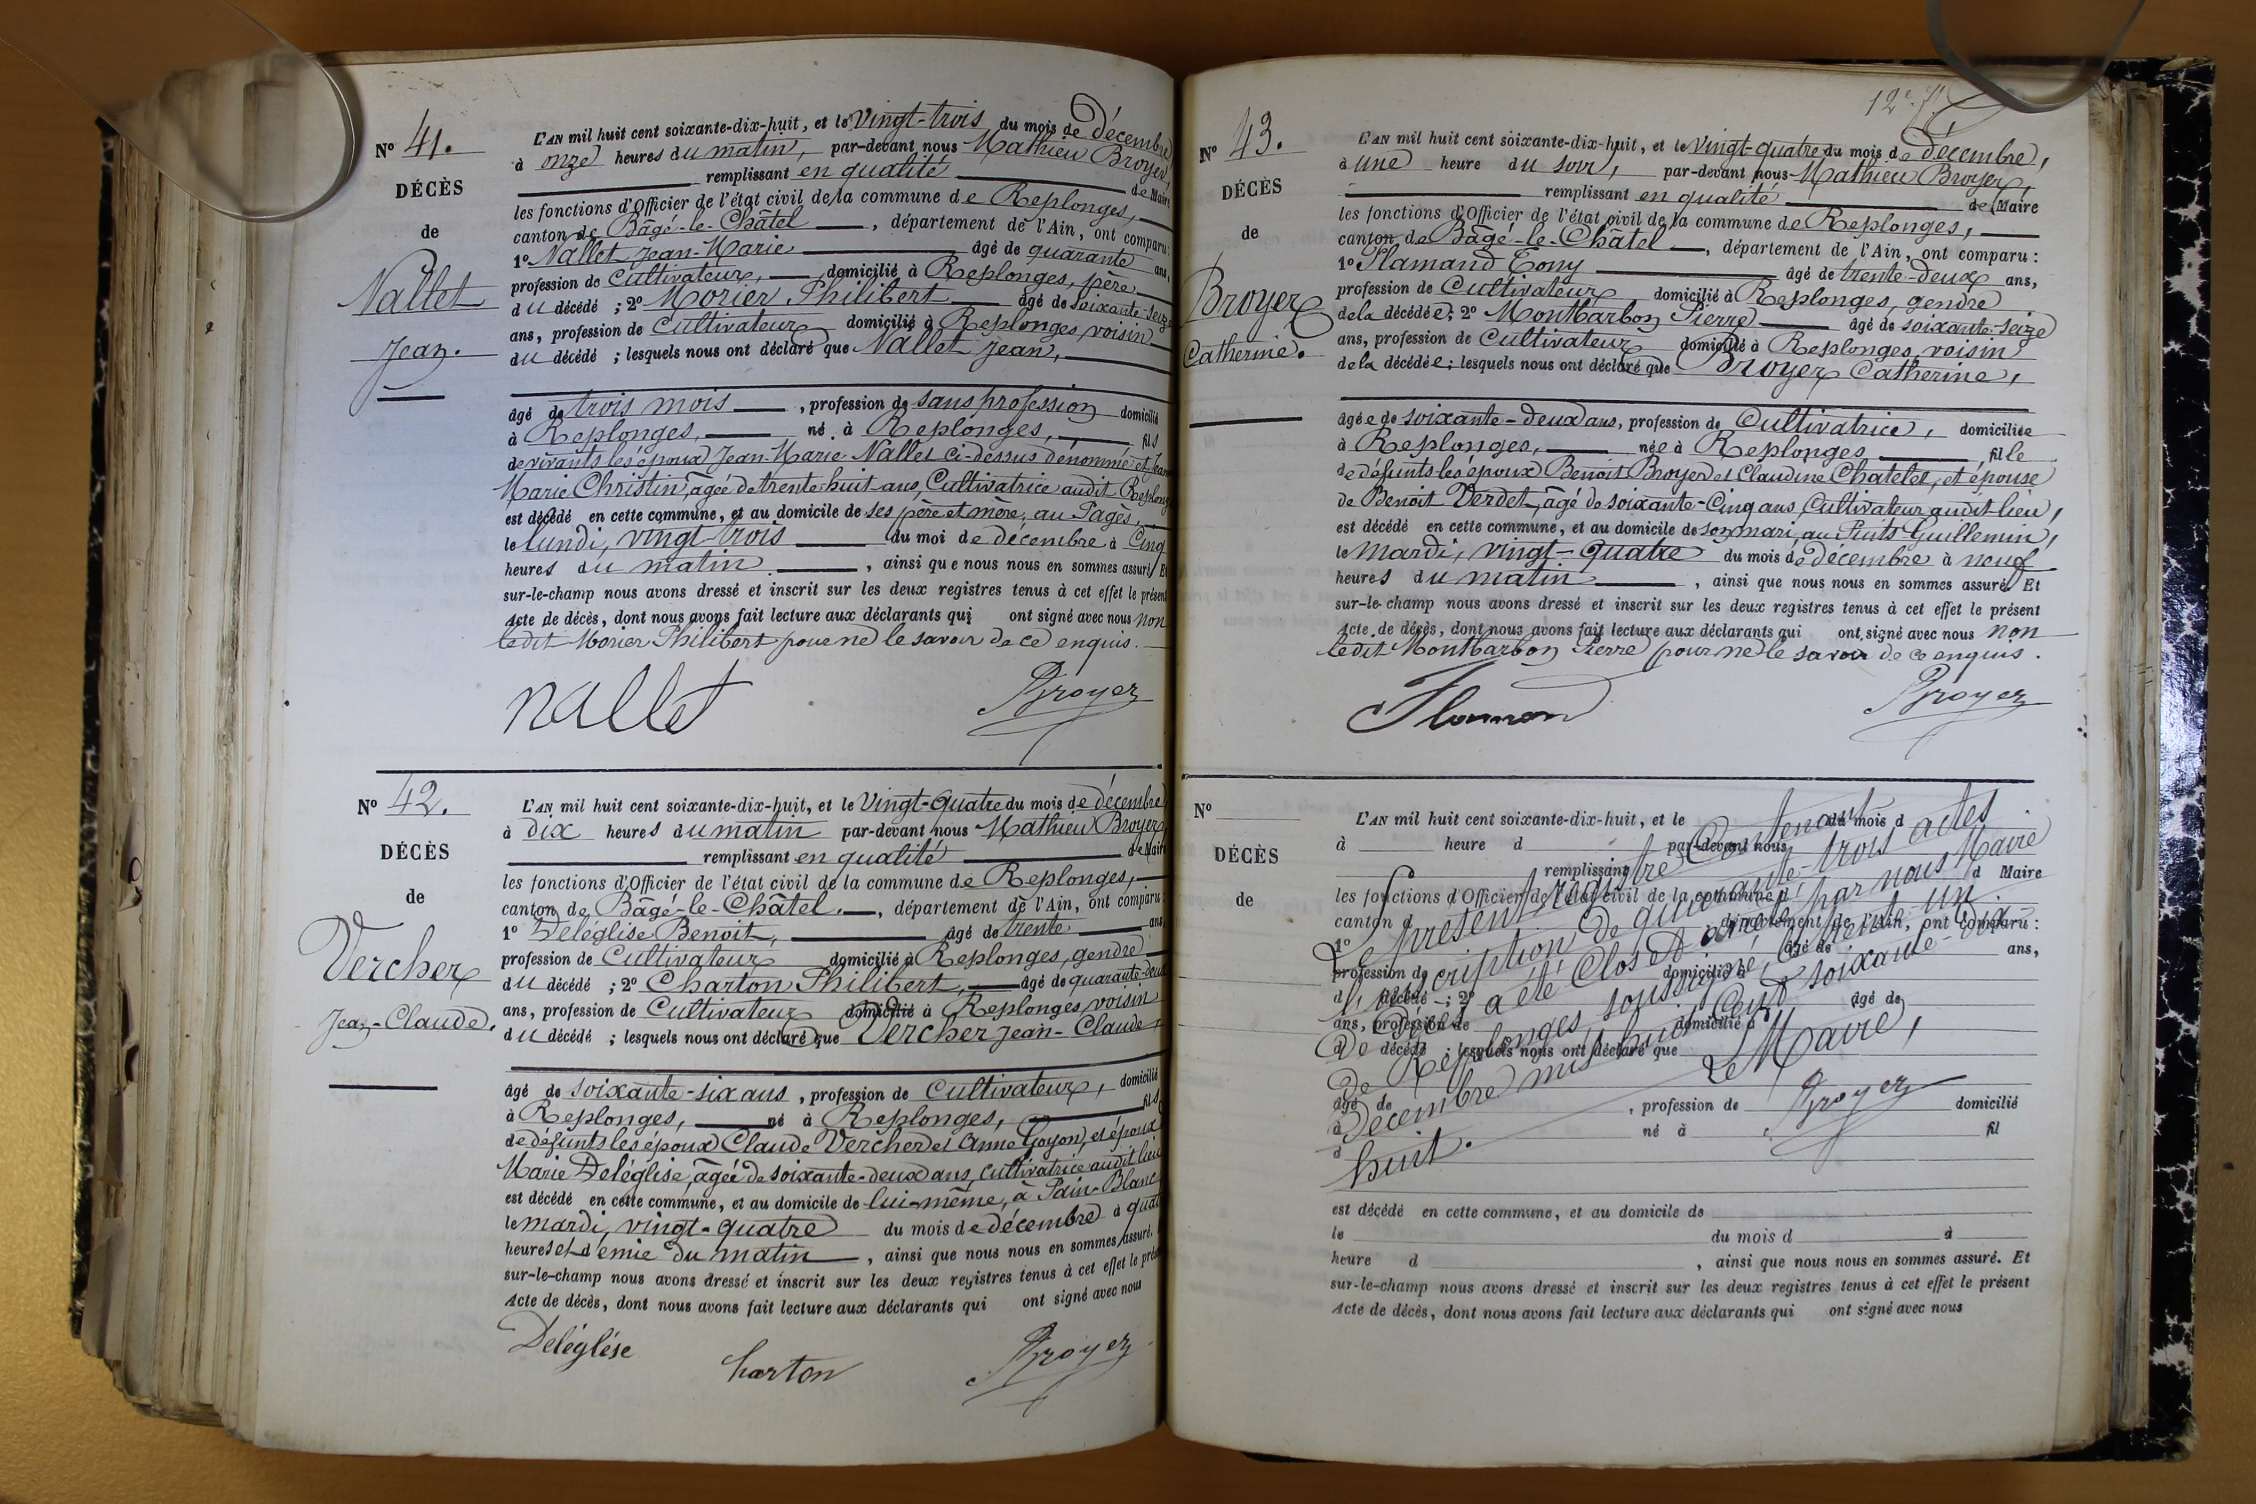 N° 41.
DÉCÈS
de
Nallet
Jean.
L'AN mil huit cent soixante-dix-huit, et le Vingt-trois du mois de Décembre
à onze heures du matin, par-devant nous Mathieu Broyer,
remplissant en qualité de Maire
les fonctions d'Officier de l'état civil de la commune de Replonges,
canton de Bâgé-le-Châtel, département de l'Ain, ont comparu:
1° Nallet Jean-Marie âgé de quarante ans,
profession de Cultivateur, domicilié à Replonges, père
du décédé ; 2° Morier Philibert âgé de soixante-seize
ans, profession de Cultivateur domicilié à Replonges, voisin
du décédé ; lesquels nous ont déclaré que Nallet Jean,
âgé de trois mois, profession de sans profession domicilié
à Replonges, né à Replonges, fils
de vivants les époux Jean-Marie Nallet ci-dessus dénommé et Jeanne
Marie Christin, âgée de trente-huit ans, Cultivatrice audit Replonges
est décédé en cette commune, et au domicile de ses père et mère, au Pagès,
le lundi, vingt-trois du moi de décembre à Cinq
heures du matin, ainsi que nous nous en sommes assuré. Et
sur-le-champ nous avons dressé et inscrit sur les deux registres tenus à cet effet le présent
Acte de décès, dont nous avons fait lecture aux déclarants qui ont signé avec nous non
ledit Morier Philibert pour ne le savoir de ce enquis.
Nallet Broyer
N° 42.
DÉCÈS
de
Vercher
Jean-Claude.
L'AN mil huit cent soixante-dix-huit, et le Vingt-quatre du mois de décembre
à dix heures du matin par-devant nous Mathieu Broyer
remplissant en qualité de Maire
les fonctions d'Officier de l'état civil de la commune de Replonges,
canton de Bâgé-le-Châtel, département de l'Ain, ont comparu:
1° Deléglise Benoit, âgé de trente ans,
profession de Cultivateur domicilié à Replonges, gendre
du décédé ; 2° Charton Philibert, âgé de quarante-deux
ans, profession de Cultivateur domicilié à Replonges voisin
du décédé ; lesquels nous ont déclaré que Vercher Jean-Claude,
âgé de soixante-six ans, profession de Cultivateur, domicilié
à Replonges, né à Replonges, fils
de défunts les époux Claude Vercher et Anne Goyon, et époux
Marie Deléglise, âgée de soixante-deux ans, cultivatrice audit lieu
est décédé en cette commune, et au domicile de lui-même, à Pain-Blanc
le mardi, vingt-quatre du mois de décembre à quatre
heures et demie du matin, ainsi que nous nous en sommes assuré.
sur-le-champ nous avons dressé et inscrit sur les deux registres tenus à cet effet le présent
Acte de décès, dont nous avons fait lecture aux déclarants qui ont signé avec nous
Deléglise Charton Broyer
12e
N° 43.
DÉCÈS
de
Broyer
Catherine.
L'AN mil huit cent soixante-dix-huit, et le vingt-quatre du mois de décembre,
à une heure du soir, par-devant nous Mathieu Broyer,
remplissant en qualité de Maire
les fonctions d'Officier de l'état civil de la commune de Replonges,
canton de Bâgé-le-Châtel, département de l'Ain, ont comparu:
1° Flamand Tony âgé de trente-deux ans,
profession de Cultivateur domicilié à Replonges, gendre
de la décédée ; 2° Montbarbon Pierre âgé de soixante-seize
ans, profession de Cultivateur domicilié à Replonges voisin
de la décédée ; lesquels nous ont déclaré que Broyer Catherine,
âgée de soixante-deux ans, profession de Cultivatrice, domiciliée
à Replonges, née à Replonges fille
de défunts les époux Benoit Broyer et Claudine Chatelet, et épouse
de Benoit Verdet, âgé de soixante-Cinq ans, Cultivateur audit lieu,
est décédé en cette commune, et au domicile de son mari, au Puits Guillemin,
le mardi, vingt-quatre du mois de décembre à neuf
heures du matin, ainsi que nous nous en sommes assuré. Et
sur-le-champ nous avons dressé et inscrit sur les deux registres tenus à cet effet le présent
Acte de décès, dont nous avons fait lecture aux déclarants qui ont signé avec nous non
ledit Montbarbon Pierre pour ne le savoir de ce enquis.
Flamand Broyer
N°
DÉCÈS
de
L'AN mil huit cent soixante-dix-huit, et le du mois d
à heure d par-devant nous
remplissant d Maire
les fonctions d'Officier de l'état civil de la commune d
canton d département de l'Ain, ont comparu:
1° âgé de ans,
profession de domicilié à
d décédé ; 2° âgé de
ans, profession de domicilié à
d décédé ; lesquels nous ont déclaré que
âgé de , profession de domicilié
à né à fil
d
est décédé en cette commune, et au domicile de
le du mois d à
heure d , ainsi que nous nous en sommes assuré. Et
sur-le-champ nous avons dressé et inscrit sur les deux registres tenus à cet effet le présent
Acte de décès, dont nous avons fait lecture aux déclarants qui ont signé avec nous
Le présent registre Contenant
l'inscription de quarante-trois actes
De Décès a été Clos et arrêté par nous Maire
De Replonges soussigné, le trente un
Décembre mil huit Cent soixante-dix
huit.
Le Maire,
Broyer